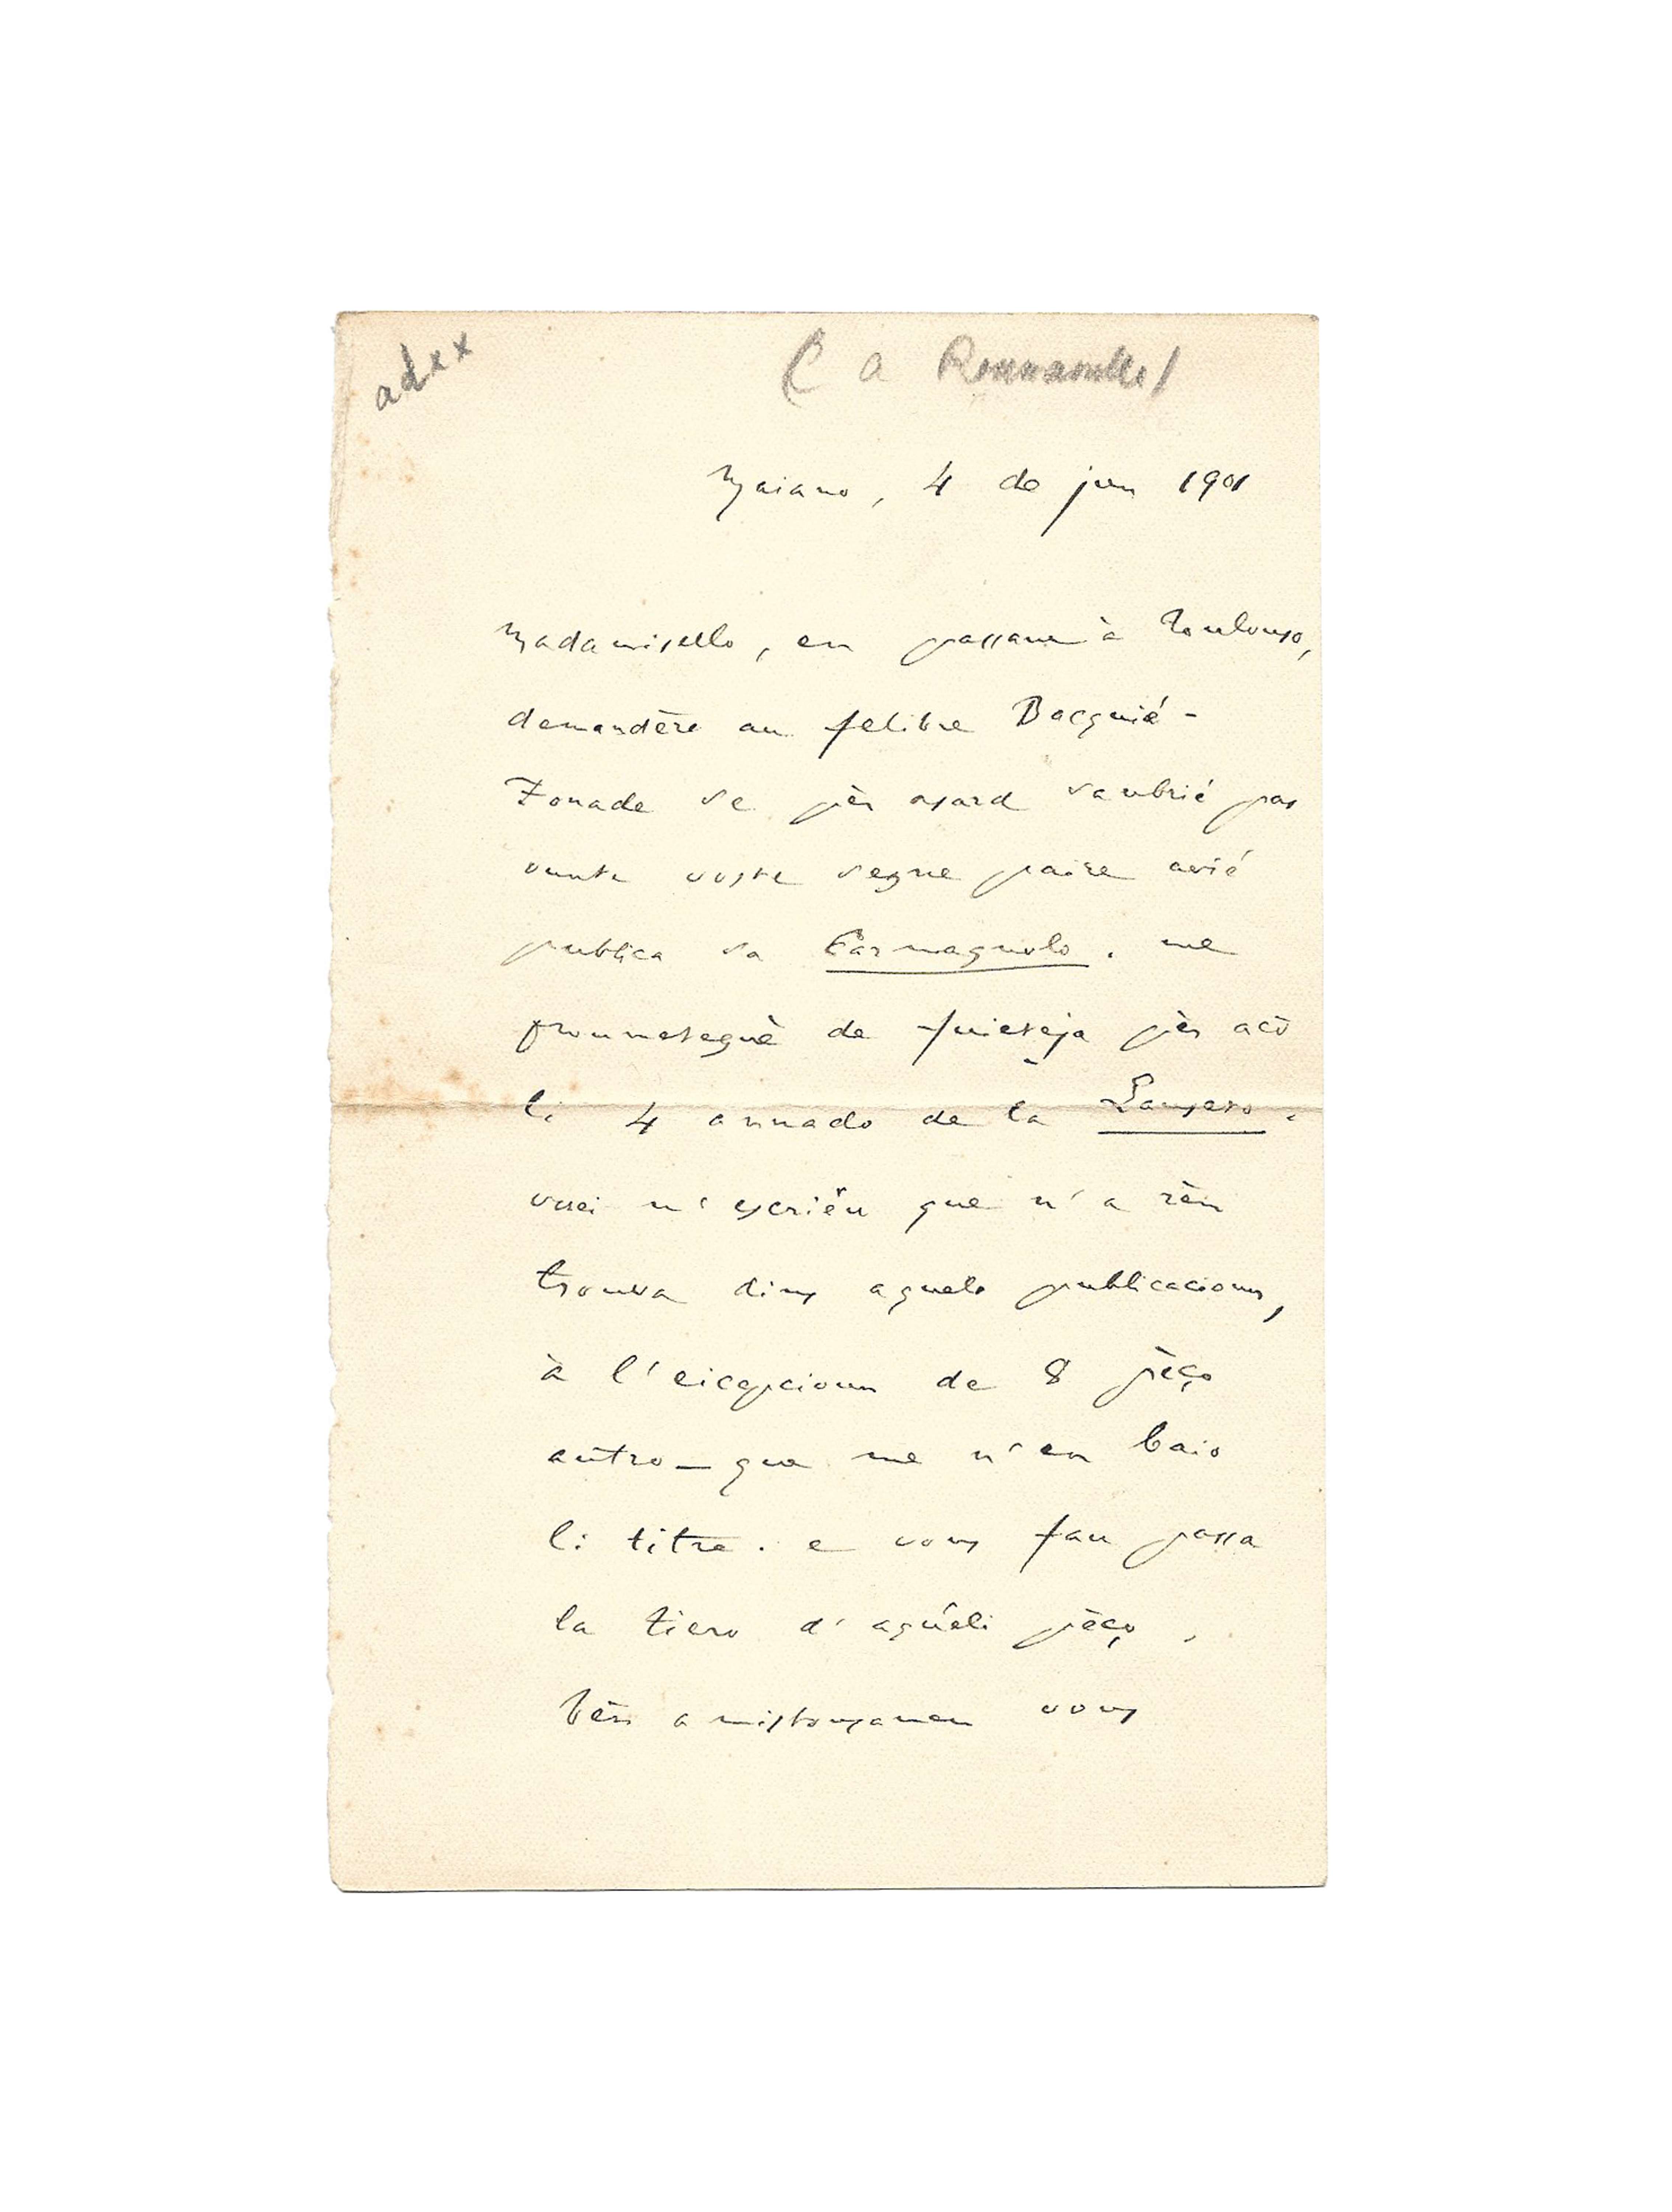 adxx
( a Roumanille)
Maiano, 4 de jun 1901
Madamisello, en passant à Toulouso,
demandère au felibre Bacquié-
Fonade se pèr asard saubrié pas
ounte voste segne paire avié
publica sa Carmagnolo. me
proumeteguè de fureteja pèr acò
li 4 annado de la Lauseto.
vuei m'escriéu que n'a rèn
trouva dins aquelo publicacioun,
à l'eicepcioun de 8 pèço
autro — que me n'en baio
li titre. e vous fau passa
la tiero d'aquéli pèço.
bèn amistousamen vous